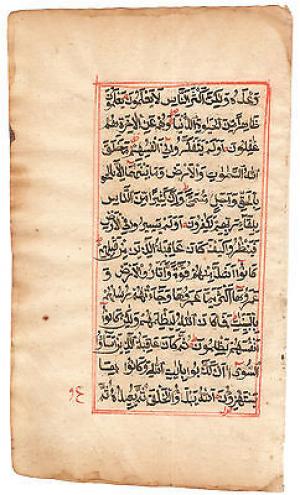 وعده ولكن اكثر الناس لا يعلمون يعلمون
ظاهرا من الحيوة الدنيا وهم عن الاخرة هم
غفلون اولم يتفكروا في انفسهم ما خلق
الله السموات والارض وما بينهما الا
بالحق واجل مسمى وان كثيرا من الناس
بلقاء ربهم لكفرون اولم يسيروا في الارض
فينظروا كيف كان عاقبة الذين من قبلهم
كانوا اشد منهم قوة واثاروا الارض و
عمروها اكثر مما عمروها وجاءتهم رسلهم
بالبينت فما كان الله ليظلمهم ولكن كانوا
انفسهم يظلمون ثم كان عاقبة الذين اساؤا
السوأى ان كذبوا بايت الله وكانوا بها
يستهزؤن الله يبدؤ الخلق ثم يعيده ثم